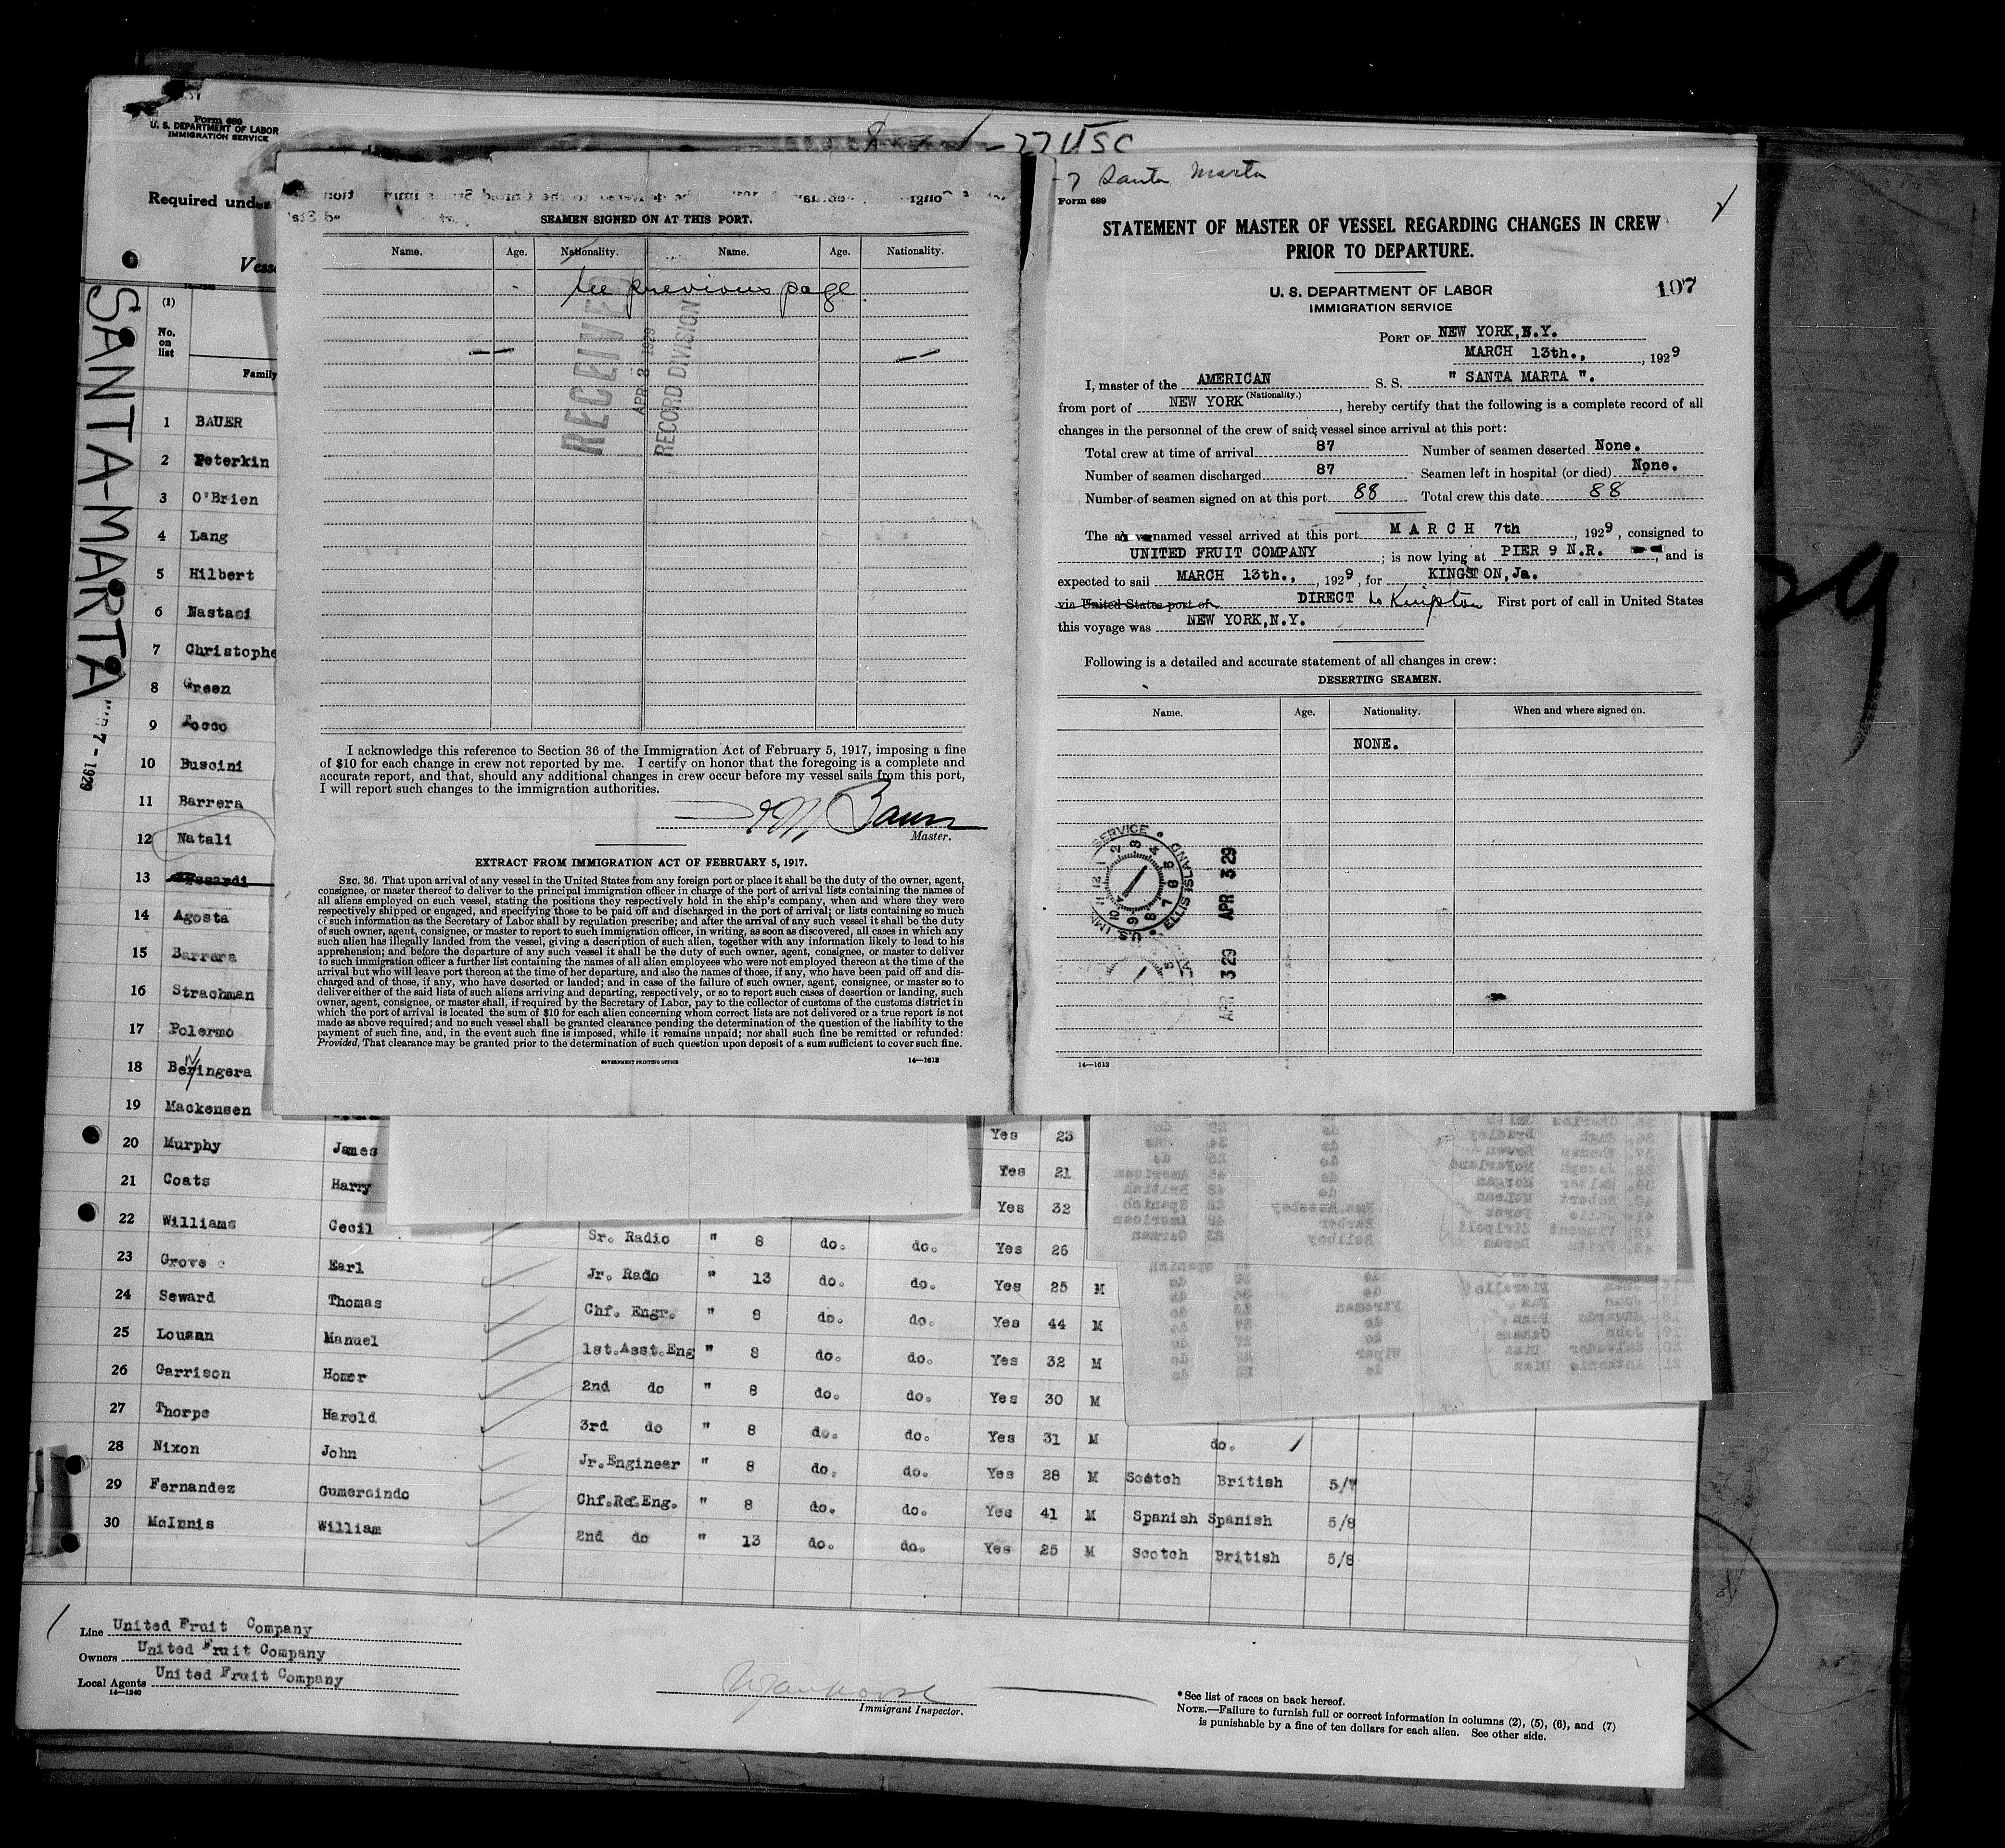 Form 680
U. S. DEPARTMENT OF LABOR
IMMIGRATION SERVICE
Required under
Vess
SANTA-MARTA
7-1929
(1)
No. on list
Family
1 BAUER
2 Peterkin
3 O'Brien
4 Lang
5 Hilbert
6 Nastasi
7 Christophe
8 Green
9 Rocco
10 Buscini
11 Barrera
12 Natali
13
14 Agosta
15 Barrera
16 Strachman
17 Polermo
18 Beringera
19 Mackensen
20 Murphy James Yes 23
21 Coats Harry Yes 21
22 Williams Cecil Yes 32
23 Grove Earl Sr. Radio " 8 do. do. Yes 26
24 Seward Thomas Jr. Rado " 13 do. do. Yes 25 M
25 Lousan Manuel Chf. Engr. " 8 do. do. Yes 44 M
26 Garrison Homer 1st.Asst.Eng " 8 do. do. Yes 32 M
27 Thorpe Harold 2nd do " 8 do. do. Yes 30 M
28 Nixon John 3rd do " 8 do. do. Yes 31 M do.
29 Fernandez Gumercindo Jr.Engineer " 8 do. do. Yes 28 M Scotch British 5/7
30 McInnis William Chf.Ref.Eng. " 8 do. do. Yes 41 M Spanish Spanish 5/8
2nd do " 13 do. do. Yes 25 M Scotch British 5/8
Line United Fruit Company
Owners United Fruit Company
Local Agents United Fruit Company
14—1240
Immigrant Inspector.
*See list of races on back hereof.
NOTE.—Failure to furnish full or correct information in columns (2), (5), (6), and (7)
is punishable by a fine of ten dollars for each alien. See other side.
SEAMEN SIGNED ON AT THIS PORT.
Name. Age. Nationality. Name. Age. Nationality.
See previous page
RECEIVED
APR 3 1929
RECORD DIVISION
I acknowledge this reference to Section 36 of the Immigration Act of February 5, 1917, imposing a fine
of $10 for each change in crew not reported by me. I certify on honor that the foregoing is a complete and
accurate report, and that, should any additional changes in crew occur before my vessel sails from this port,
I will report such changes to the immigration authorities.
Bauer
Master.
EXTRACT FROM IMMIGRATION ACT OF FEBRUARY 5, 1917.
SEC. 36. That upon arrival of any vessel in the United States from any foreign port or place it shall be the duty of the owner, agent,
consignee, or master thereof to deliver to the principal immigration officer in charge of the port of arrival lists containing the names of
all aliens employed on such vessel, stating the positions they respectively hold in the ship's company, when and where they were
respectively shipped or engaged, and specifying those to be paid off and discharged in the port of arrival; or lists containing so much
of such information as the Secretary of Labor shall by regulation prescribe; and after the arrival of any such vessel it shall be the duty
of such owner, agent, consignee, or master to report to such immigration officer, in writing, as soon as discovered, all cases in which any
such alien has illegally landed from the vessel, giving a description of such alien, together with any information likely to lead to his
apprehension; and before the departure of any such vessel it shall be the duty of such owner, agent, consignee, or master to deliver
to such immigration officer a further list containing the names of all alien employees who were not employed thereon at the time of the
arrival but who will leave port thereon at the time of her departure, and also the names of those, if any, who have been paid off and dis-
charged and of those, if any, who have deserted or landed; and in case of the failure of such owner, agent, consignee, or master so to
deliver either of the said lists of such aliens arriving and departing, respectively, or so to report such cases of desertion or landing, such
owner, agent, consignee, or master shall, if required by the Secretary of Labor, pay to the collector of customs of the customs district in
which the port of arrival is located the sum of $10 for each alien concerning whom correct lists are not delivered or a true report is not
made as above required; and no such vessel shall be granted clearance pending the determination of the question of the liability to the
payment of such fine, and, in the event such fine is imposed, while it remains unpaid; nor shall such fine be remitted or refunded:
Provided, That clearance may be granted prior to the determination of such question upon deposit of a sum sufficient to cover such fine.
GOVERNMENT PRINTING OFFICE 14—1613
Santa Marta
Form 689
STATEMENT OF MASTER OF VESSEL REGARDING CHANGES IN CREW
PRIOR TO DEPARTURE.
U. S. DEPARTMENT OF LABOR
IMMIGRATION SERVICE
107
PORT OF NEW YORK,N.Y.
MARCH 13th., , 1929
I, master of the AMERICAN S. S. " SANTA MARTA ".
(Nationality.)
from port of NEW YORK , hereby certify that the following is a complete record of all
changes in the personnel of the crew of said vessel since arrival at this port:
Total crew at time of arrival 87 Number of seamen deserted None.
Number of seamen discharged 87 Seamen left in hospital (or died) None.
Number of seamen signed on at this port 88 Total crew this date 88
The above named vessel arrived at this port MARCH 7th , 1929, consigned to
UNITED FRUIT COMPANY ; is now lying at PIER 9 N.R. , and is
expected to sail MARCH 13th., , 1929, for KINGSTON,Ja.
via United States port of DIRECT to Kingston First port of call in United States
this voyage was NEW YORK,N.Y.
Following is a detailed and accurate statement of all changes in crew:
DESERTING SEAMEN.
Name. Age. Nationality. When and where signed on.
NONE.
U.S. IMM. SERVICE ELLIS ISLAND
APR 3 29
APR 3 29
14—1613